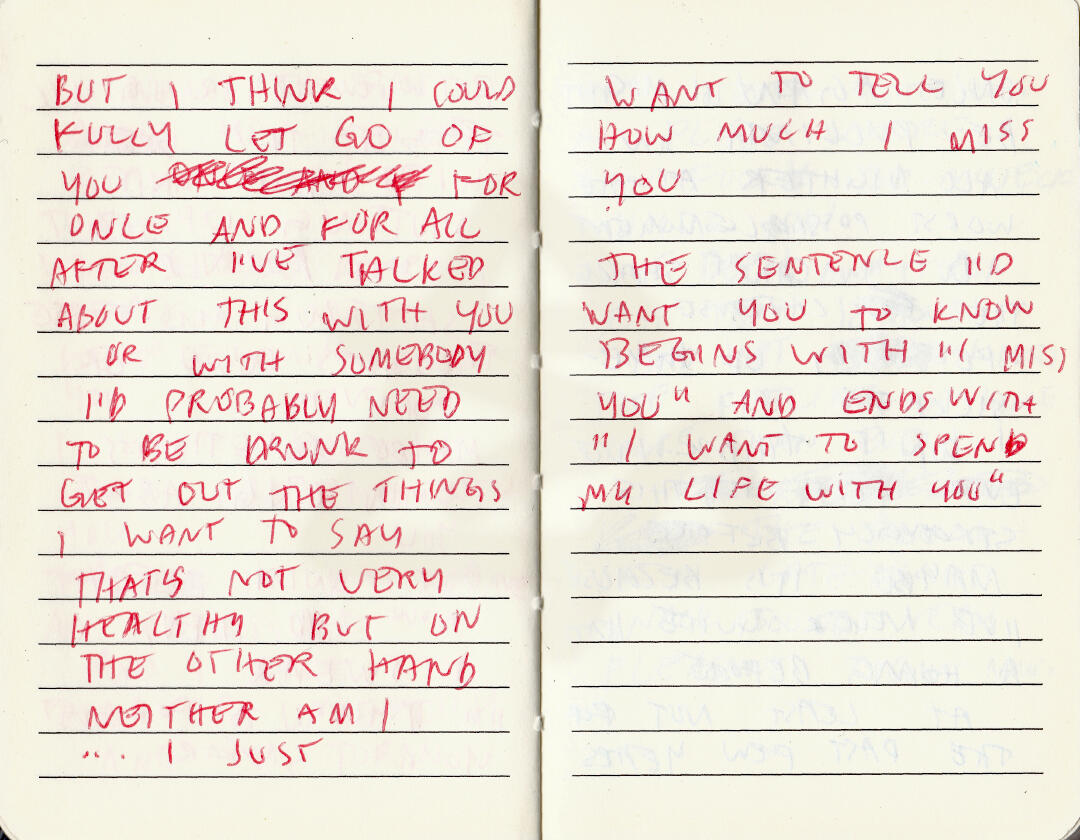 BUT I THINK I COULD
FULLY LET GO OF
YOU FOR
ONCE AND FOR ALL
AFTER I'VE TALKED
ABOUT THIS WITH YOU
OR WITH SOMEBODY
I'D PROBABLY NEED
TO BE DRUNK TO
GET OUT THE THINGS
I WANT TO SAY
THAT'S NOT VERY
HEALTHY BUT ON
THE OTHER HAND
NEITHER AM I
.... I JUST
WANT TO TELL YOU
HOW MUCH I MISS
YOU
THE SENTENCE I'D
WANT YOU TO KNOW
BEGINS WITH "I MISS
YOU" AND ENDS WITH
"I WANT TO SPEND
MY LIFE WITH YOU"